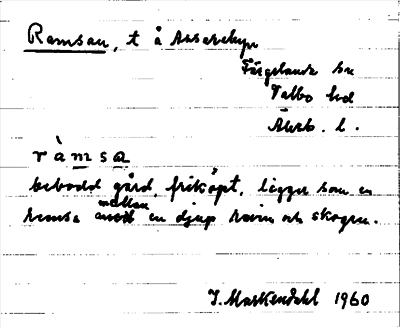 Ramsan, t å Assarebyn
Färgelanda sn
Valbo hd
Älvsb. l.
ràmsa
bebodd gård, friköpt, ligger som en
remsa mellan en djup ravin och skogen.
J. Markendahl 1960